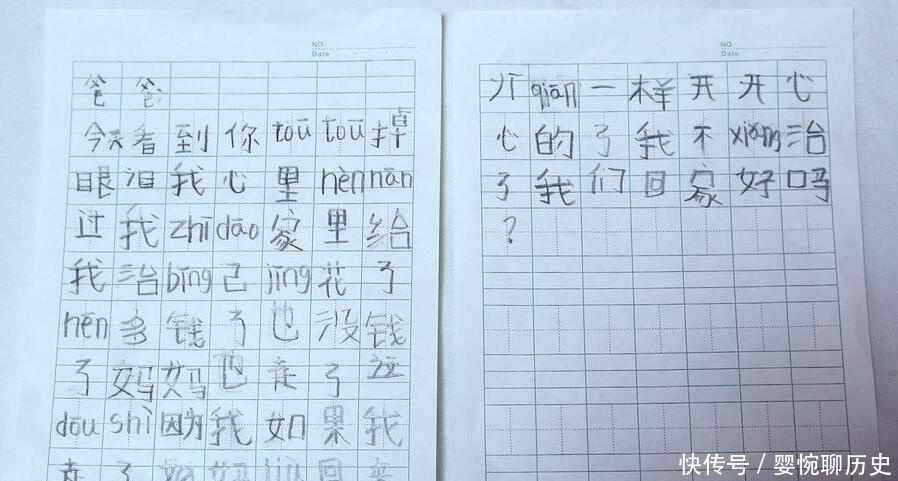 NO.
Date
爸爸
今天看到你tōu tōu掉
眼泪我心里hèn nān
过我zhī dāo家里给
我治bīng己jīng花了
hēn多钱了也没钱
了妈妈也走了这
dōu shì因为我如果我
走了妈妈jiù回来
NO.
Date
qiān一样开开心
心的了我不xiǎng治
了我们回家好吗
?
快传号/婴惋聊历史